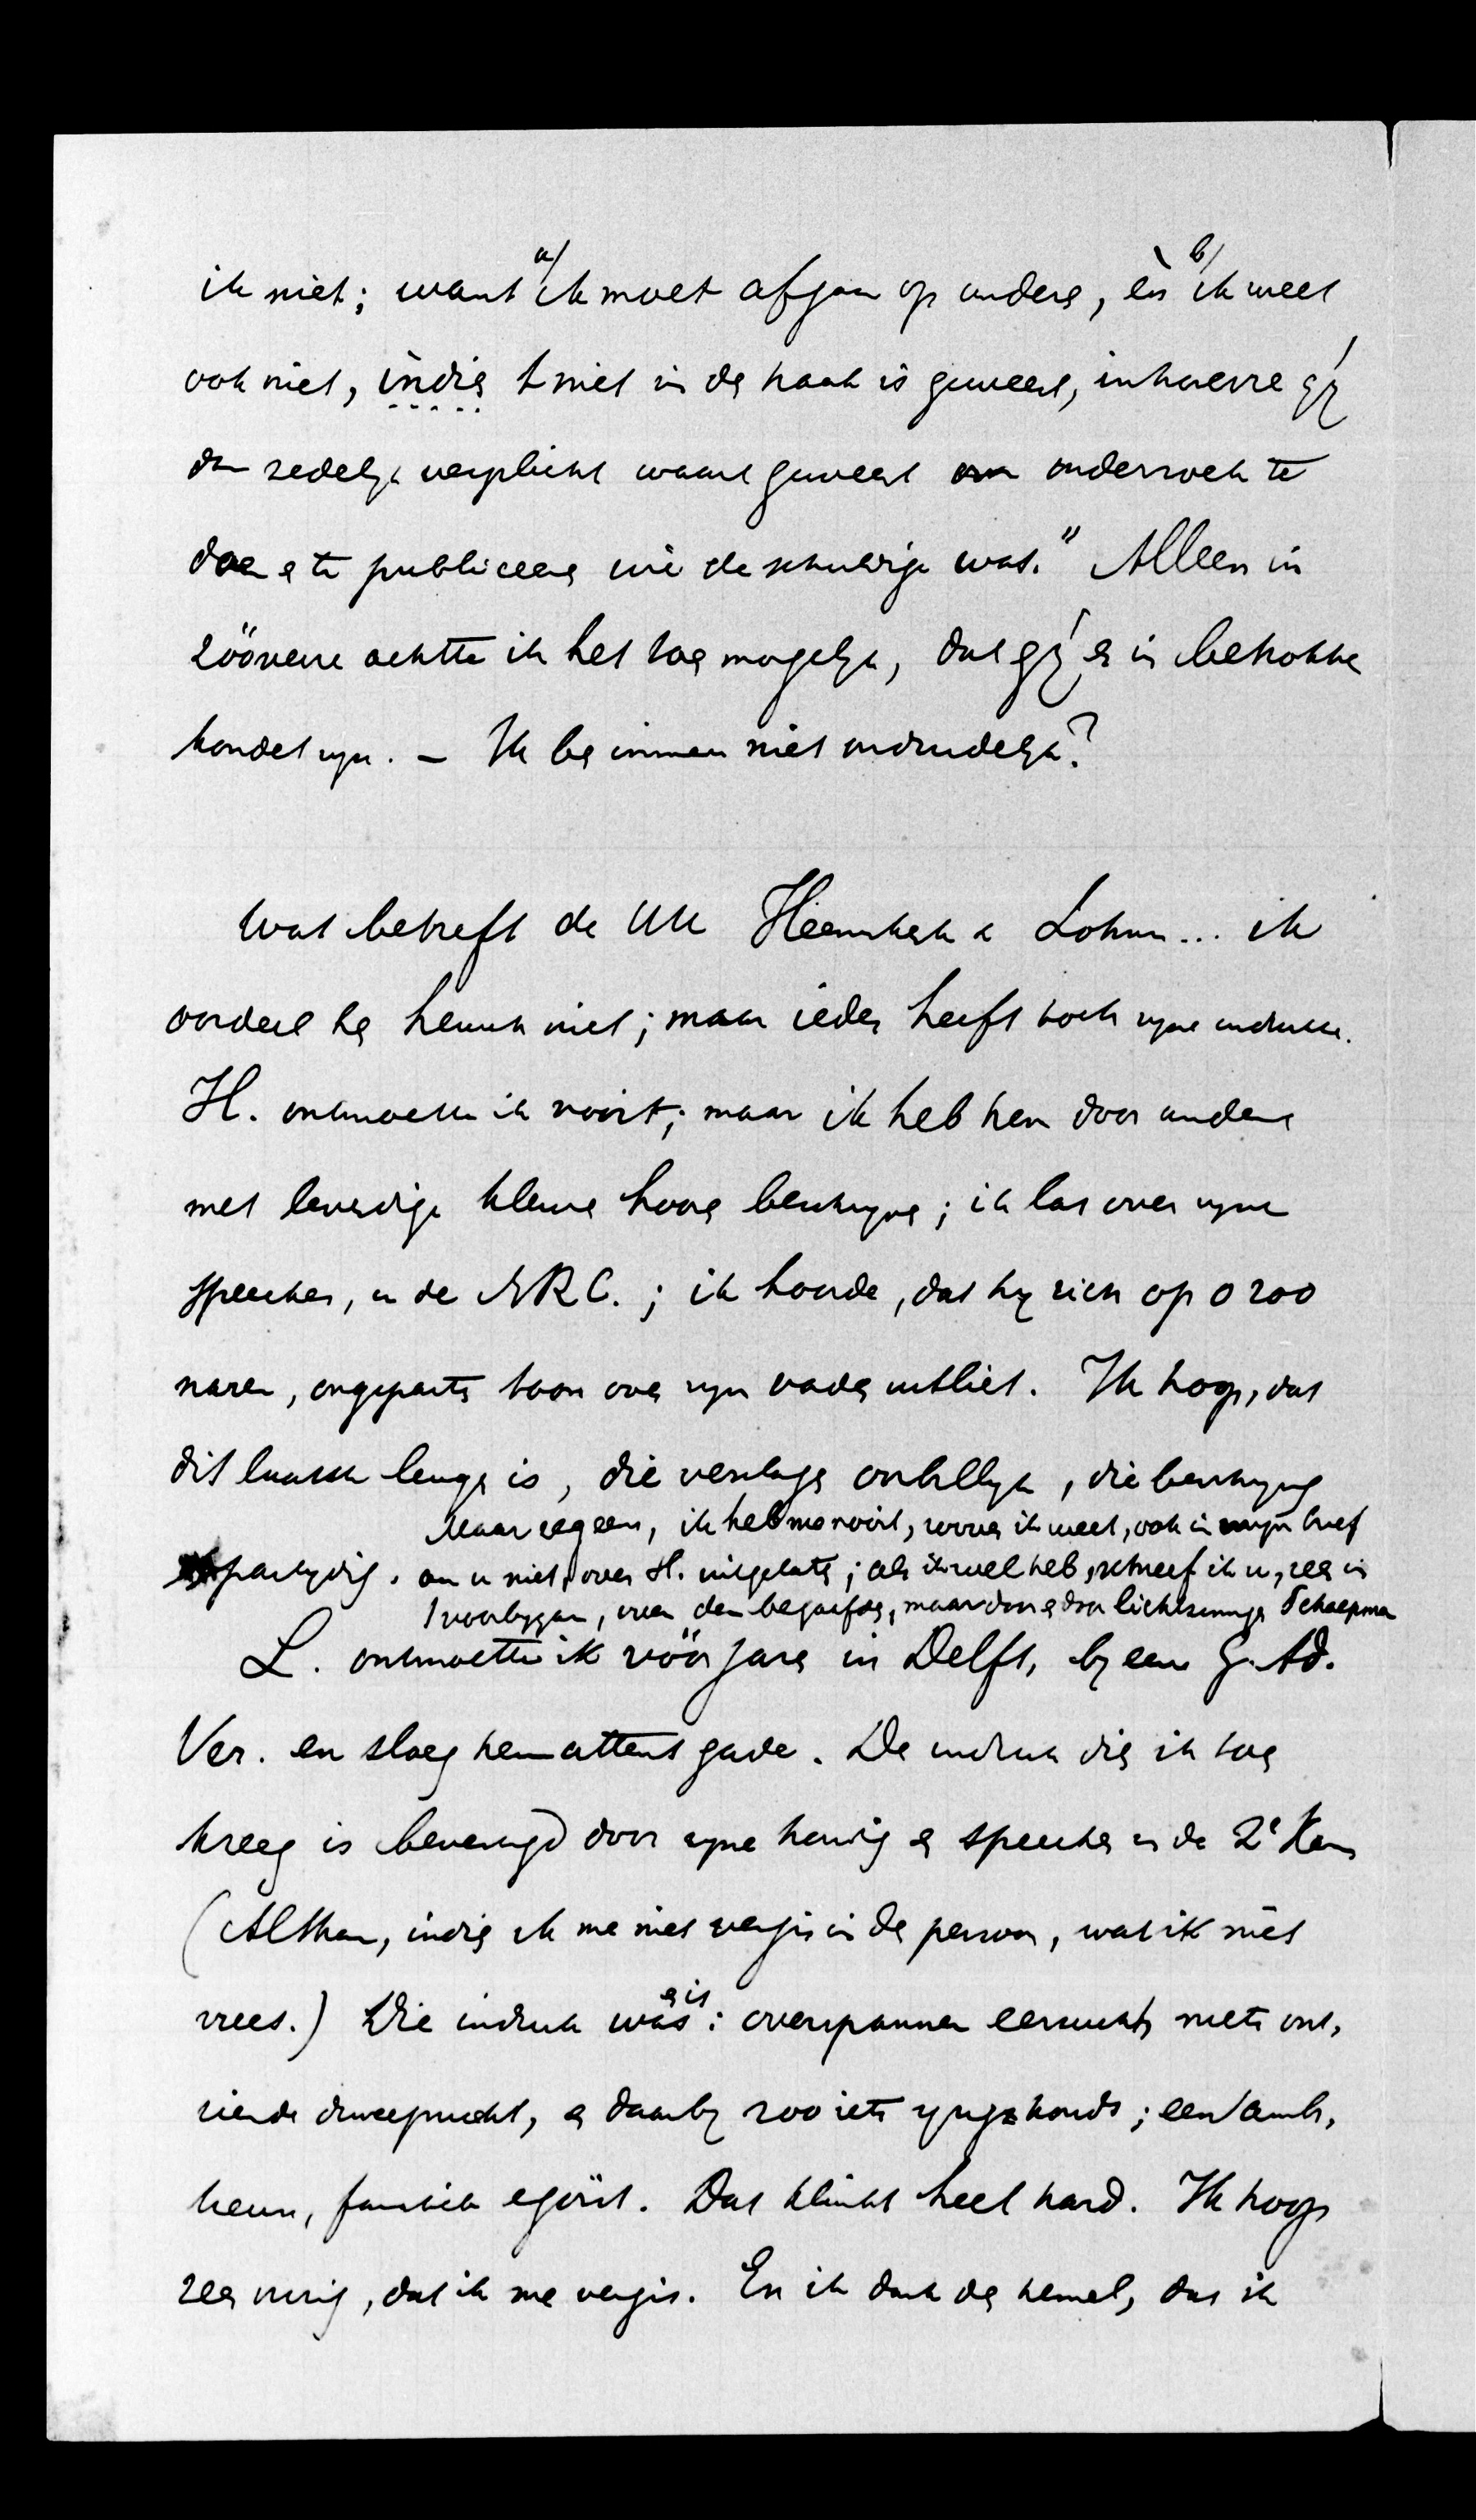 ik niet; want a/ ik moet afgaan op andere, èn b/ ik weet
ook niet, indien 't niet in den haak is geweest, in hoeverre gij
dan zedelijk verplicht waart geweest om onderzoek te
doen en te publiceeren wie de schuldige was." Alleen in
zóóverre achtte ik het toen mogelijk, dat gij er in betrokken
kondet zijn. – Ik ben immers niet onduidelijk?
Wat betreft de HH Heemskerk en Lohman... ik
oordeel ten hemel niet; maar ieder heeft toch zijne indrukken.
H. ontmoette ik nooit; maar ik heb hem door anderen
met levendige kleuren hooren beschrijven; ik las over zijne
speeches, in de NRC.; ik hoorde, dat hij zich op o zoo
naren, ongepasten toon over zijn vader uitliet. Ik hoop, dat
dit laatste leugen is, die verslagen onbillijk, die beschrijving
partijdig. Maar zeg eens, ik heb me nooit, zoover ik weet, ook in mijn brief
aan u niet, over H. uitgelaten; als ik wel heb, schreef ik u, zeer in
't voorbijgaan, over den begaafden, maar door en door lichtzinnigen Schaepman
L. ontmoette ik vóór jaren in Delft, bij eene G. Ad.
Ver. en sloeg hem attent gade. De indruk dien ik toen
kreeg is bevestigd door zijne houding en speeches in de 2e Kamer
(Althans, indien ik me niet vergis in den persoon, wat ik niet
vrees.) Die indruk was en is: overspannen eerzucht, niets ont-
ziende dweepzucht, en daarbij zoo iets
Dat klinkt heel hard. Ik hoop
zeer innig, dat ik me vergis. En ik dank den hemel, dat ik